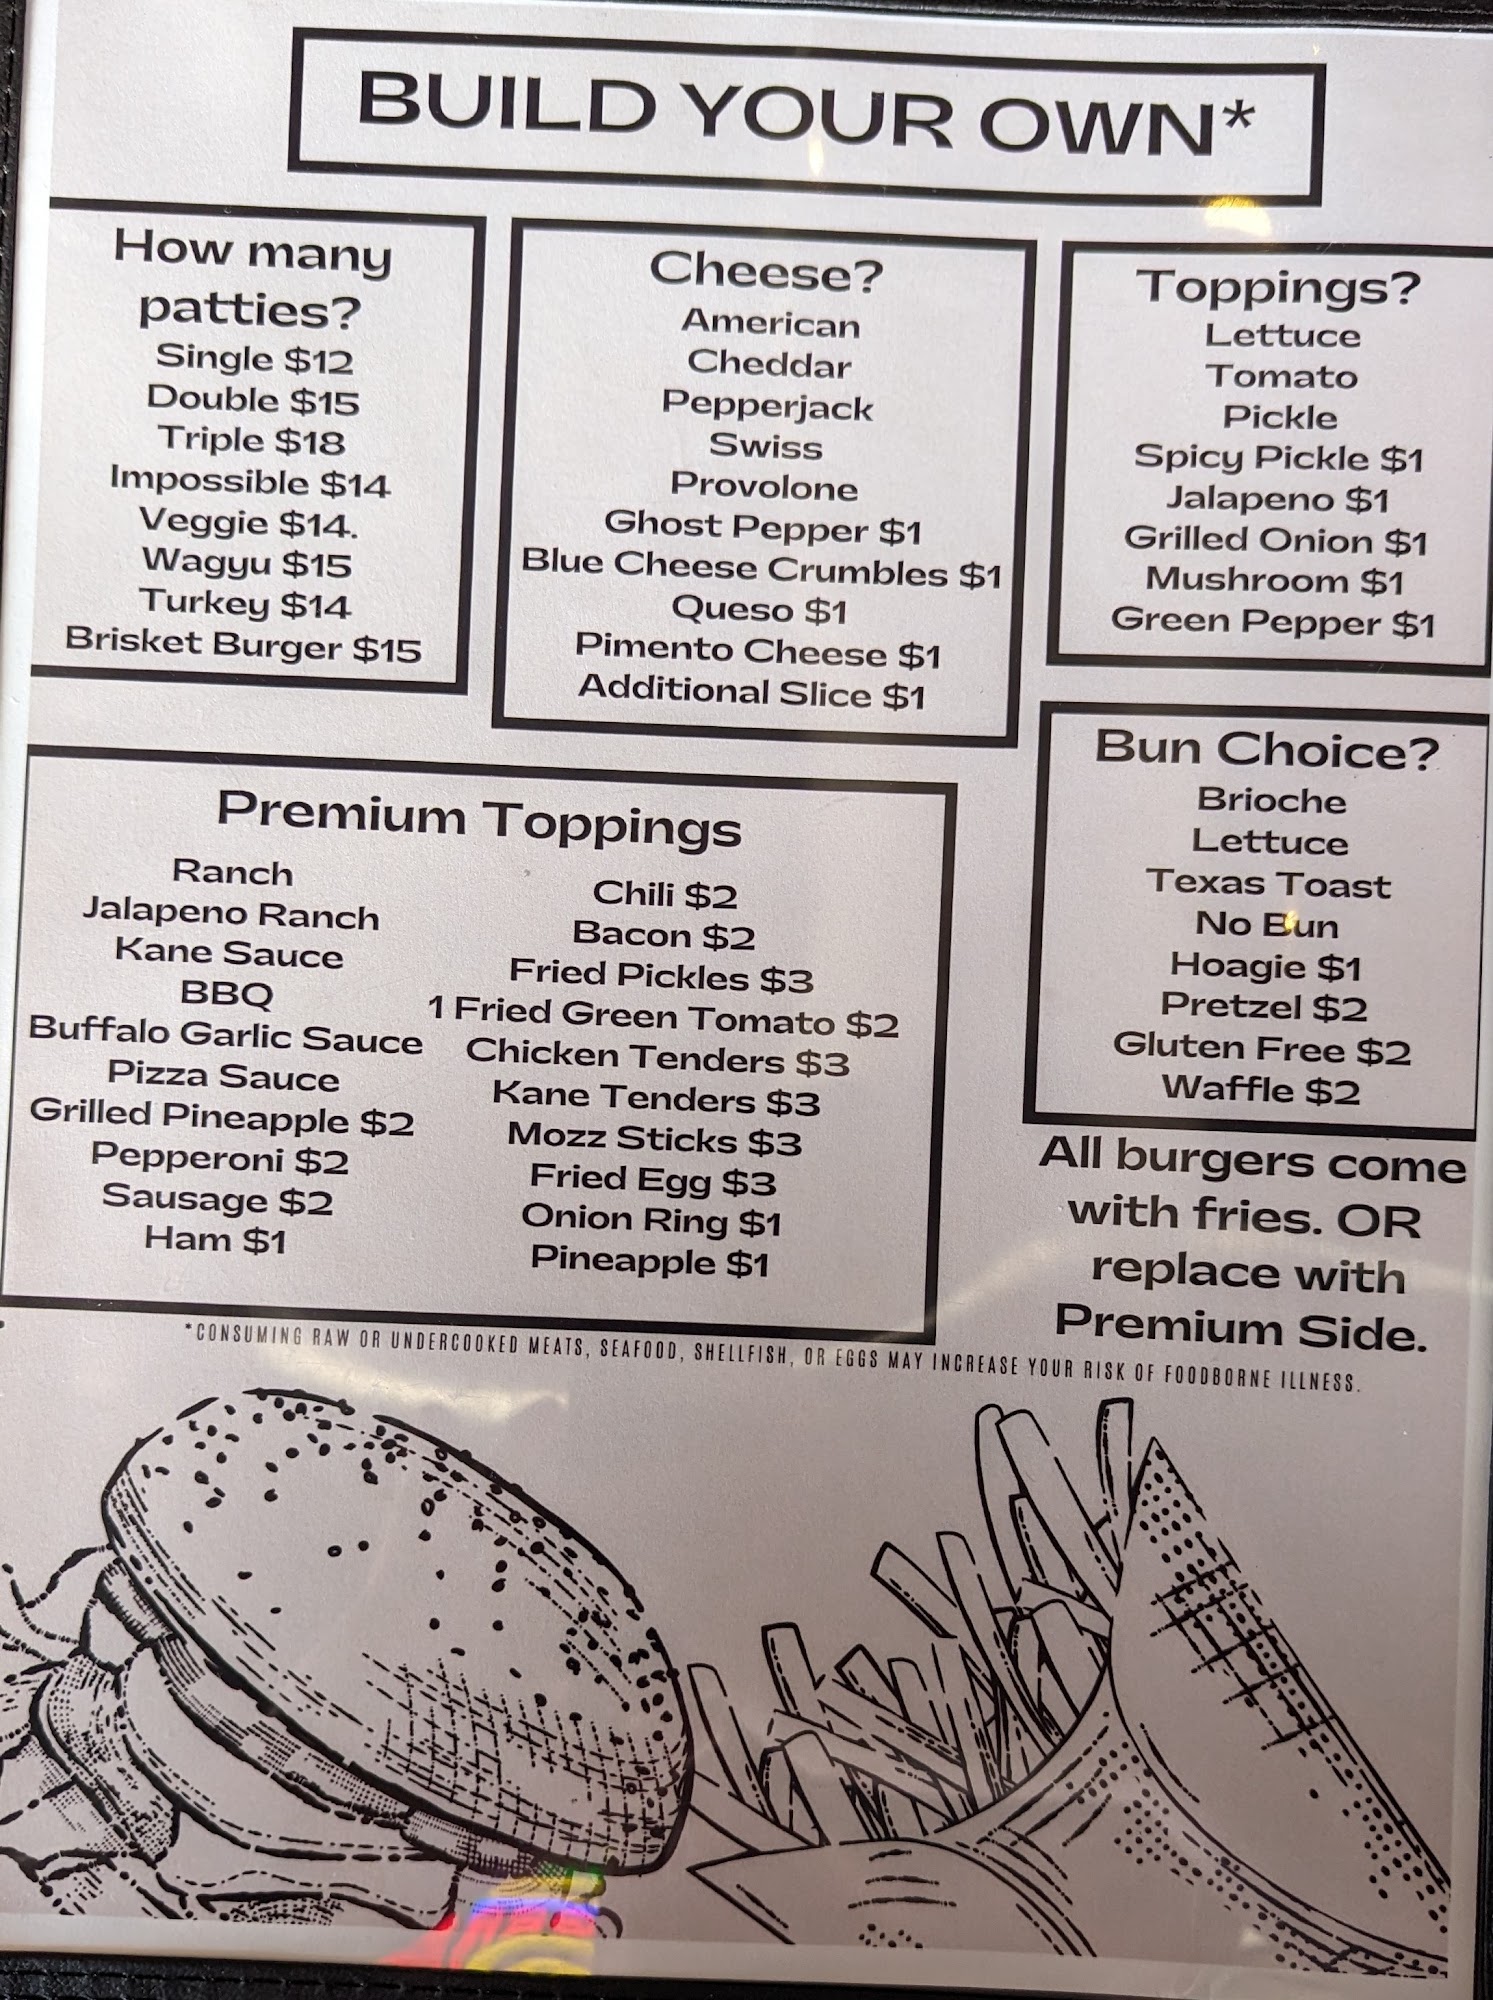 BUILD YOUR OWN*
How many
patties?
Single $12
Double $15
Triple $18
Impossible $14
Veggie $14.
Wagyu $15
Turkey $14
Brisket Burger $15
Cheese?
American
Cheddar
Pepperjack
Swiss
Provolone
Ghost Pepper $1
Blue Cheese Crumbles $1
Queso $1
Pimento Cheese $1
Additional Slice $1
Toppings?
Lettuce
Tomato
Pickle
Spicy Pickle $1
Jalapeno $1
Grilled Onion $1
Mushroom $1
Green Pepper $1
Premium Toppings
Ranch
Jalapeno Ranch
Kane Sauce
BBQ
Buffalo Garlic Sauce
Pizza Sauce
Grilled Pineapple $2
Pepperoni $2
Sausage $2
Ham $1
Chili $2
Bacon $2
Fried Pickles $3
1 Fried Green Tomato $2
Chicken Tenders $3
Kane Tenders $3
Mozz Sticks $3
Fried Egg $3
Onion Ring $1
Pineapple $1
Bun Choice?
Brioche
Lettuce
Texas Toast
No Bun
Hoagie $1
Pretzel $2
Gluten Free $2
Waffle $2
All burgers come
with fries. OR
replace with
Premium Side.
*CONSUMING RAW OR UNDERCOOKED MEATS, SEAFOOD, SHELLFISH, OR EGGS MAY INCREASE YOUR RISK OF FOODBORNE ILLNESS.